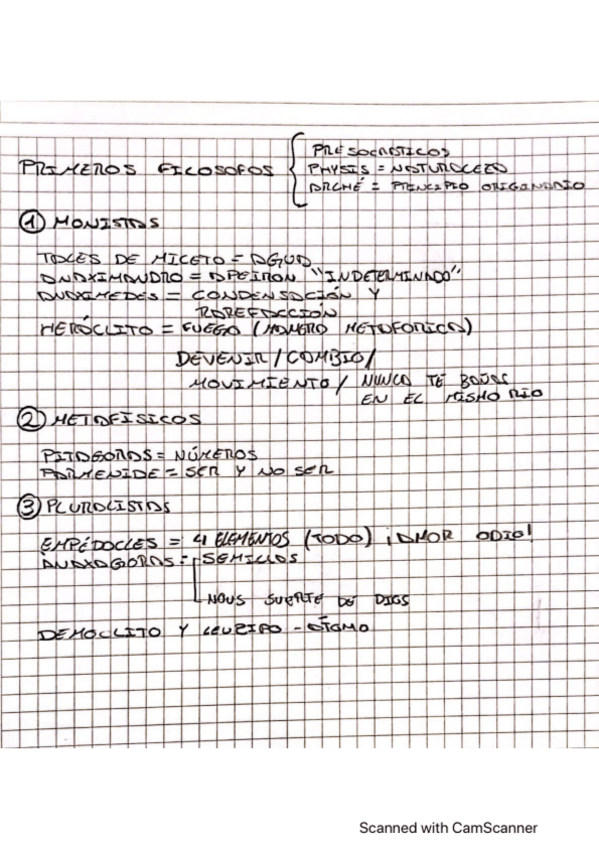 PRIMEROS FILOSOFOS
PRESOCRATICOS
PHYSIS = NATURALEZA
ARCHÉ = PRINCIPIO ORIGINARIO
1 MONISTAS
TALES DE MILETO = AGUA
ANAXIMANDRO = APEIRON "INDETERMINADO"
ANAXIMEDES = CONDENSACIÓN Y
RAREFACCIÓN
HERÁCLITO = FUEGO (MANERA METAFORICA)
DEVENIR / CAMBIO /
MOVIMIENTO / NUNCA TE BAÑAS
EN EL MISMO RIO
2 METAFISICOS
PITAGORAS = NÚMEROS
PARMENIDE = SER Y NO SER
3 PLURALISTAS
EMPÉDOCLES = 4 ELEMENTOS (TODO) ¡AMOR ODIO!
ANAXAGORAS = SEMILLAS
NOUS SUERTE DE DIOS
DEMOCLITO Y LEUZIPO - ÁTOMO
Scanned with CamScanner